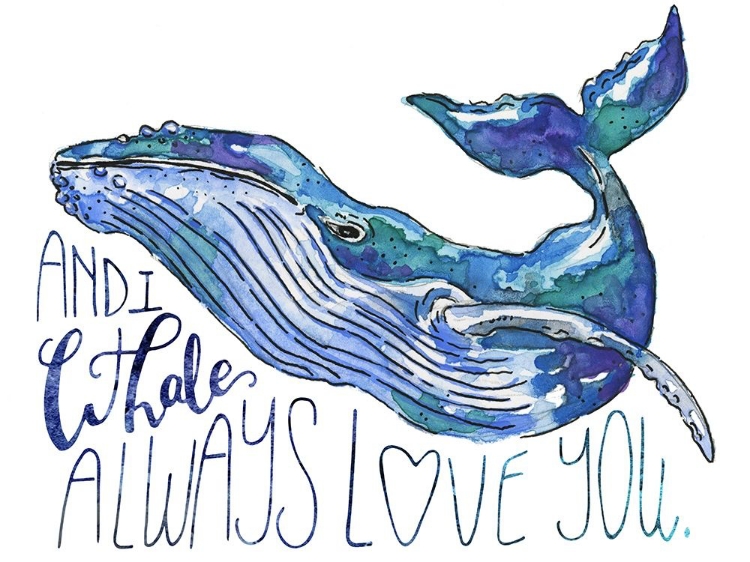 AND I
Whale
ALWAYS LOVE YOU.